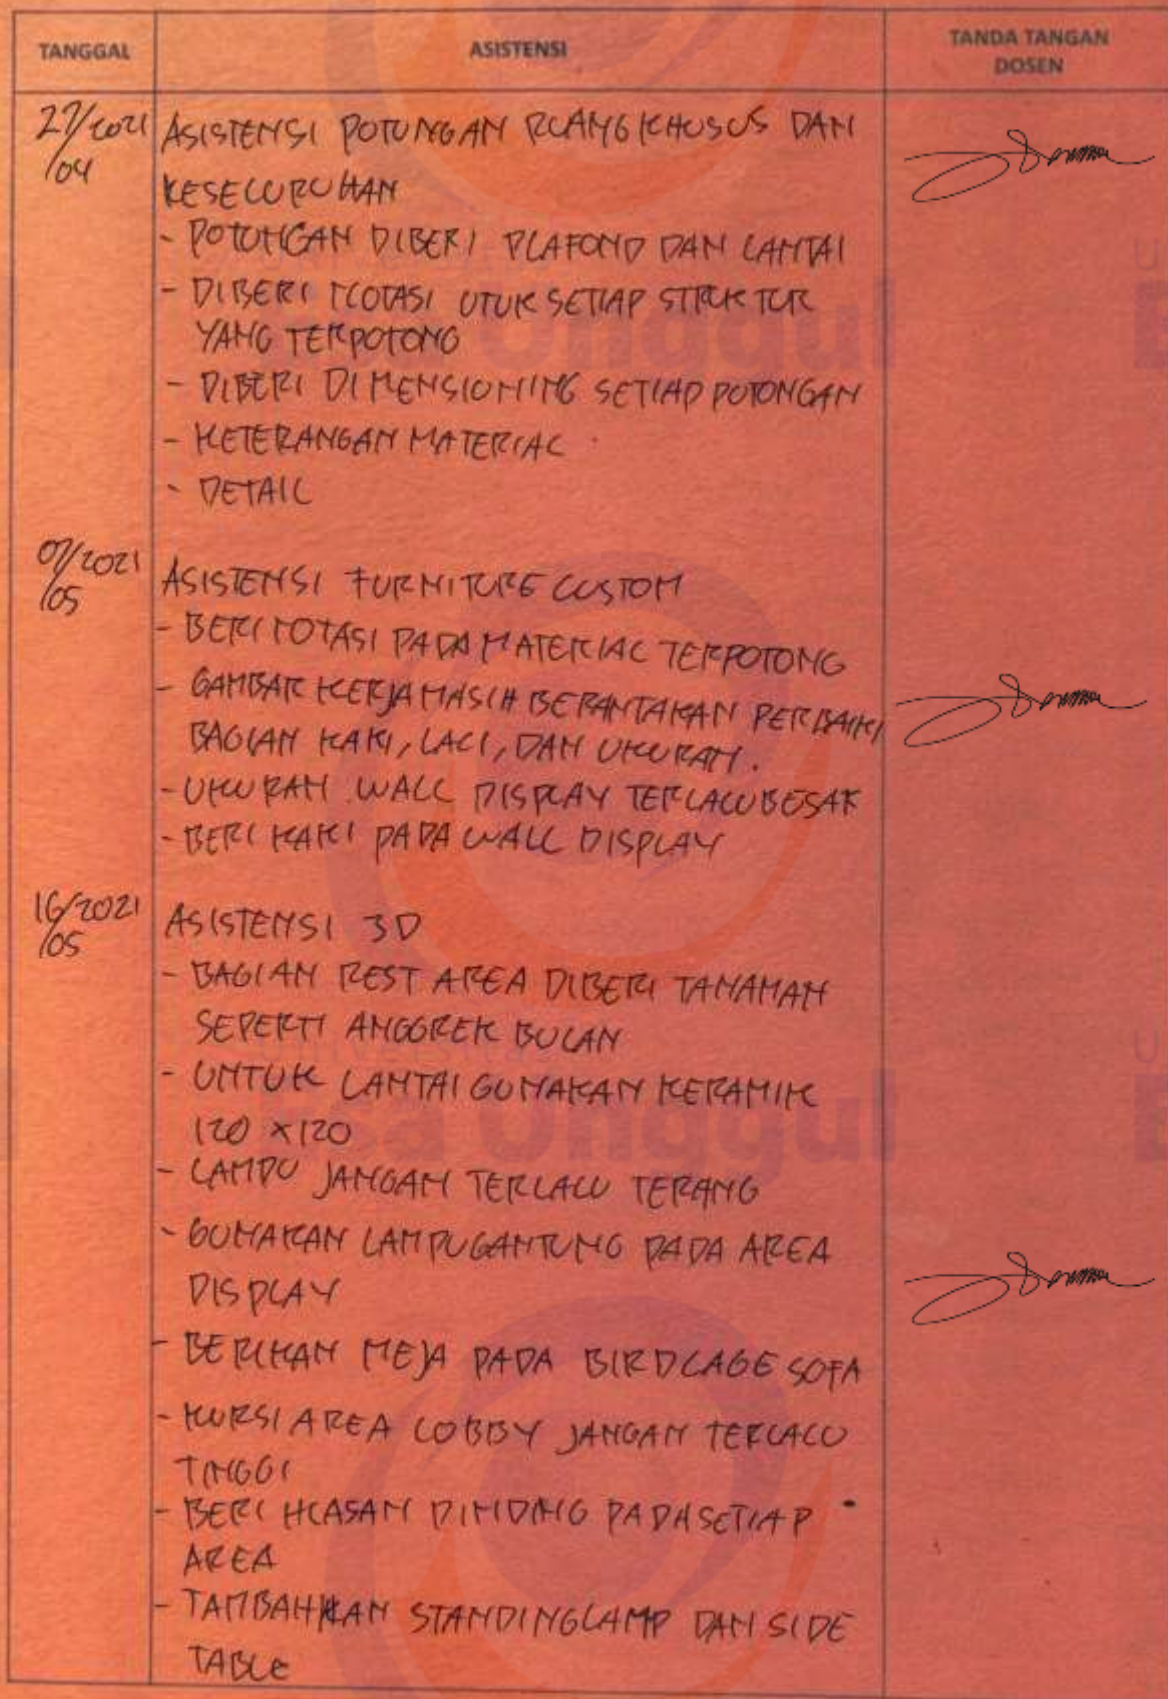 TANGGAL ASISTENSI TANDA TANGAN
DOSEN
27/2021 ASISTENSI POTONGAN RUANG KHUSUS DAN
/04
KESELURUHAN
- POTONGAN DIBERI PLAFOND DAN LANTAI
- DIBERI NOTASI UTUK SETIAP STRUKTUR
YANG TERPOTONG
- DIBERI DIMENSIONING SETIAP POTONGAN
- KETERANGAN MATERIAL
- DETAIL
07/2021
/05 ASISTENSI FURNITURE CUSTOM
- BERI NOTASI PADA MATERIAL TERPOTONG
- GAMBAR KERJA MASIH BERANTAKAN PERBAIKI
BAGIAN KAKI, LACI, DAN UKURAN.
- UKURAN WALL DISPLAY TERLALU BESAR
- BERI KAKI PADA WALL DISPLAY
16/2021 ASISTENSI 3D
/05
- BAGIAN REST AREA DIBERI TANAMAN
SEPERTI ANGGREK BULAN
- UNTUK LANTAI GUNAKAN KERAMIK
120 x 120
- LAMPU JANGAN TERLALU TERANG
- GUNAKAN LAMPU GANTUNG PADA AREA
DISPLAY
- BERIKAN MEJA PADA BIRDCAGE SOFA
- KURSI AREA LOBBY JANGAN TERLALU
TINGGI
- BERI HIASAN DINDING PADA SETIAP
AREA
- TAMBAHKAN STANDING LAMP DAN SIDE
TABLE